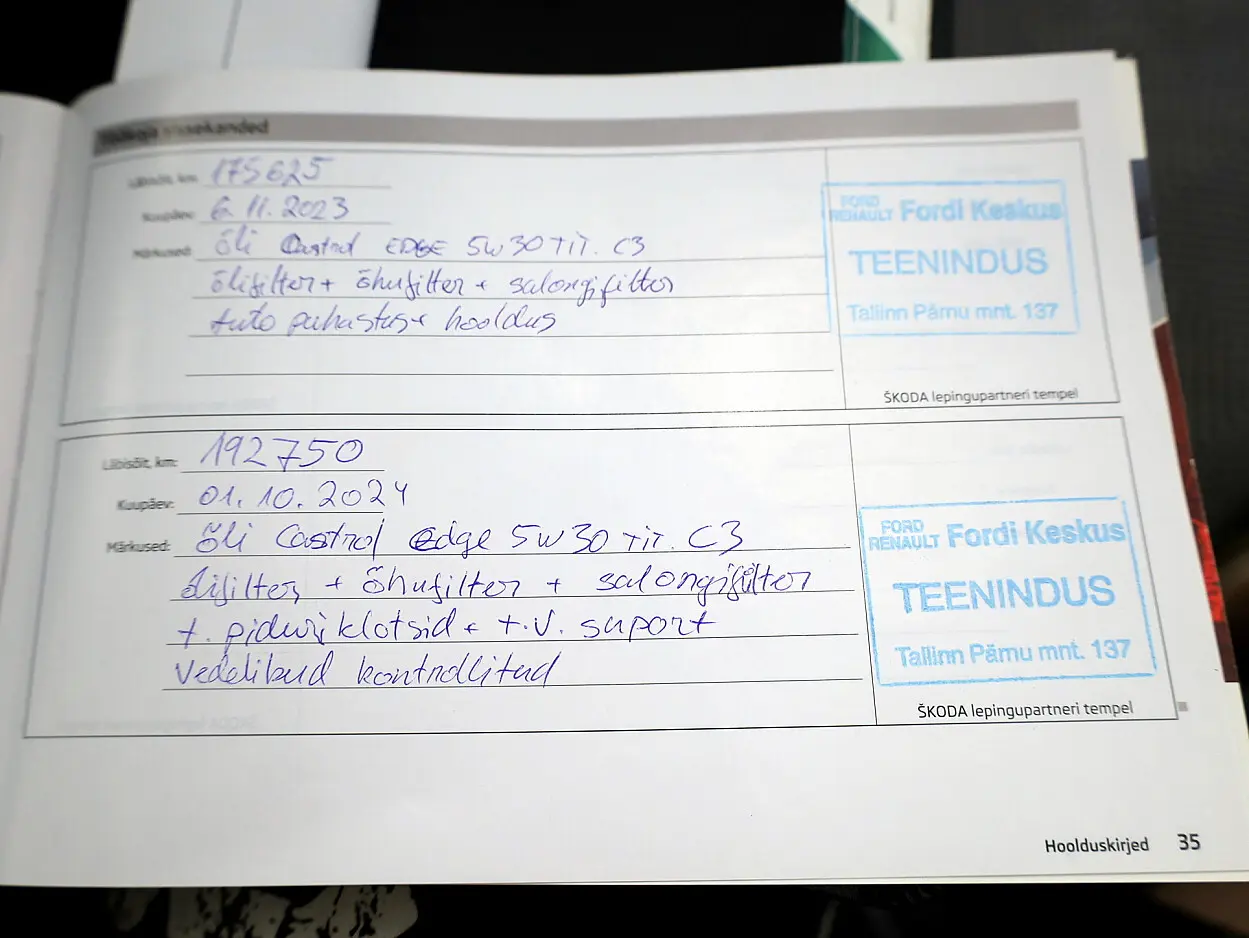 sissekanded
Läbisõit, km: 175625
Kuupäev: 6.11.2023
Märkused: Õli Castrol EDGE 5W30 TIT. C3
õlifilter + õhufilter + salongifilter
puhastus + hooldus
FORD
RENAULT Fordi Keskus
TEENINDUS
Tallinn Pärnu mnt. 137
ŠKODA lepingupartneri tempel
Läbisõit, km: 192750
Kuupäev: 01.10.2024
Märkused: Õli Castrol Edge 5W30 TIT. C3
õlifilter + õhufilter + salongifilter
t. piduriklotsid + t.v. suport
Vedelikud kontrollitud
FORD
RENAULT Fordi Keskus
TEENINDUS
Tallinn Pärnu mnt. 137
ŠKODA lepingupartneri tempel
Hoolduskirjed 35